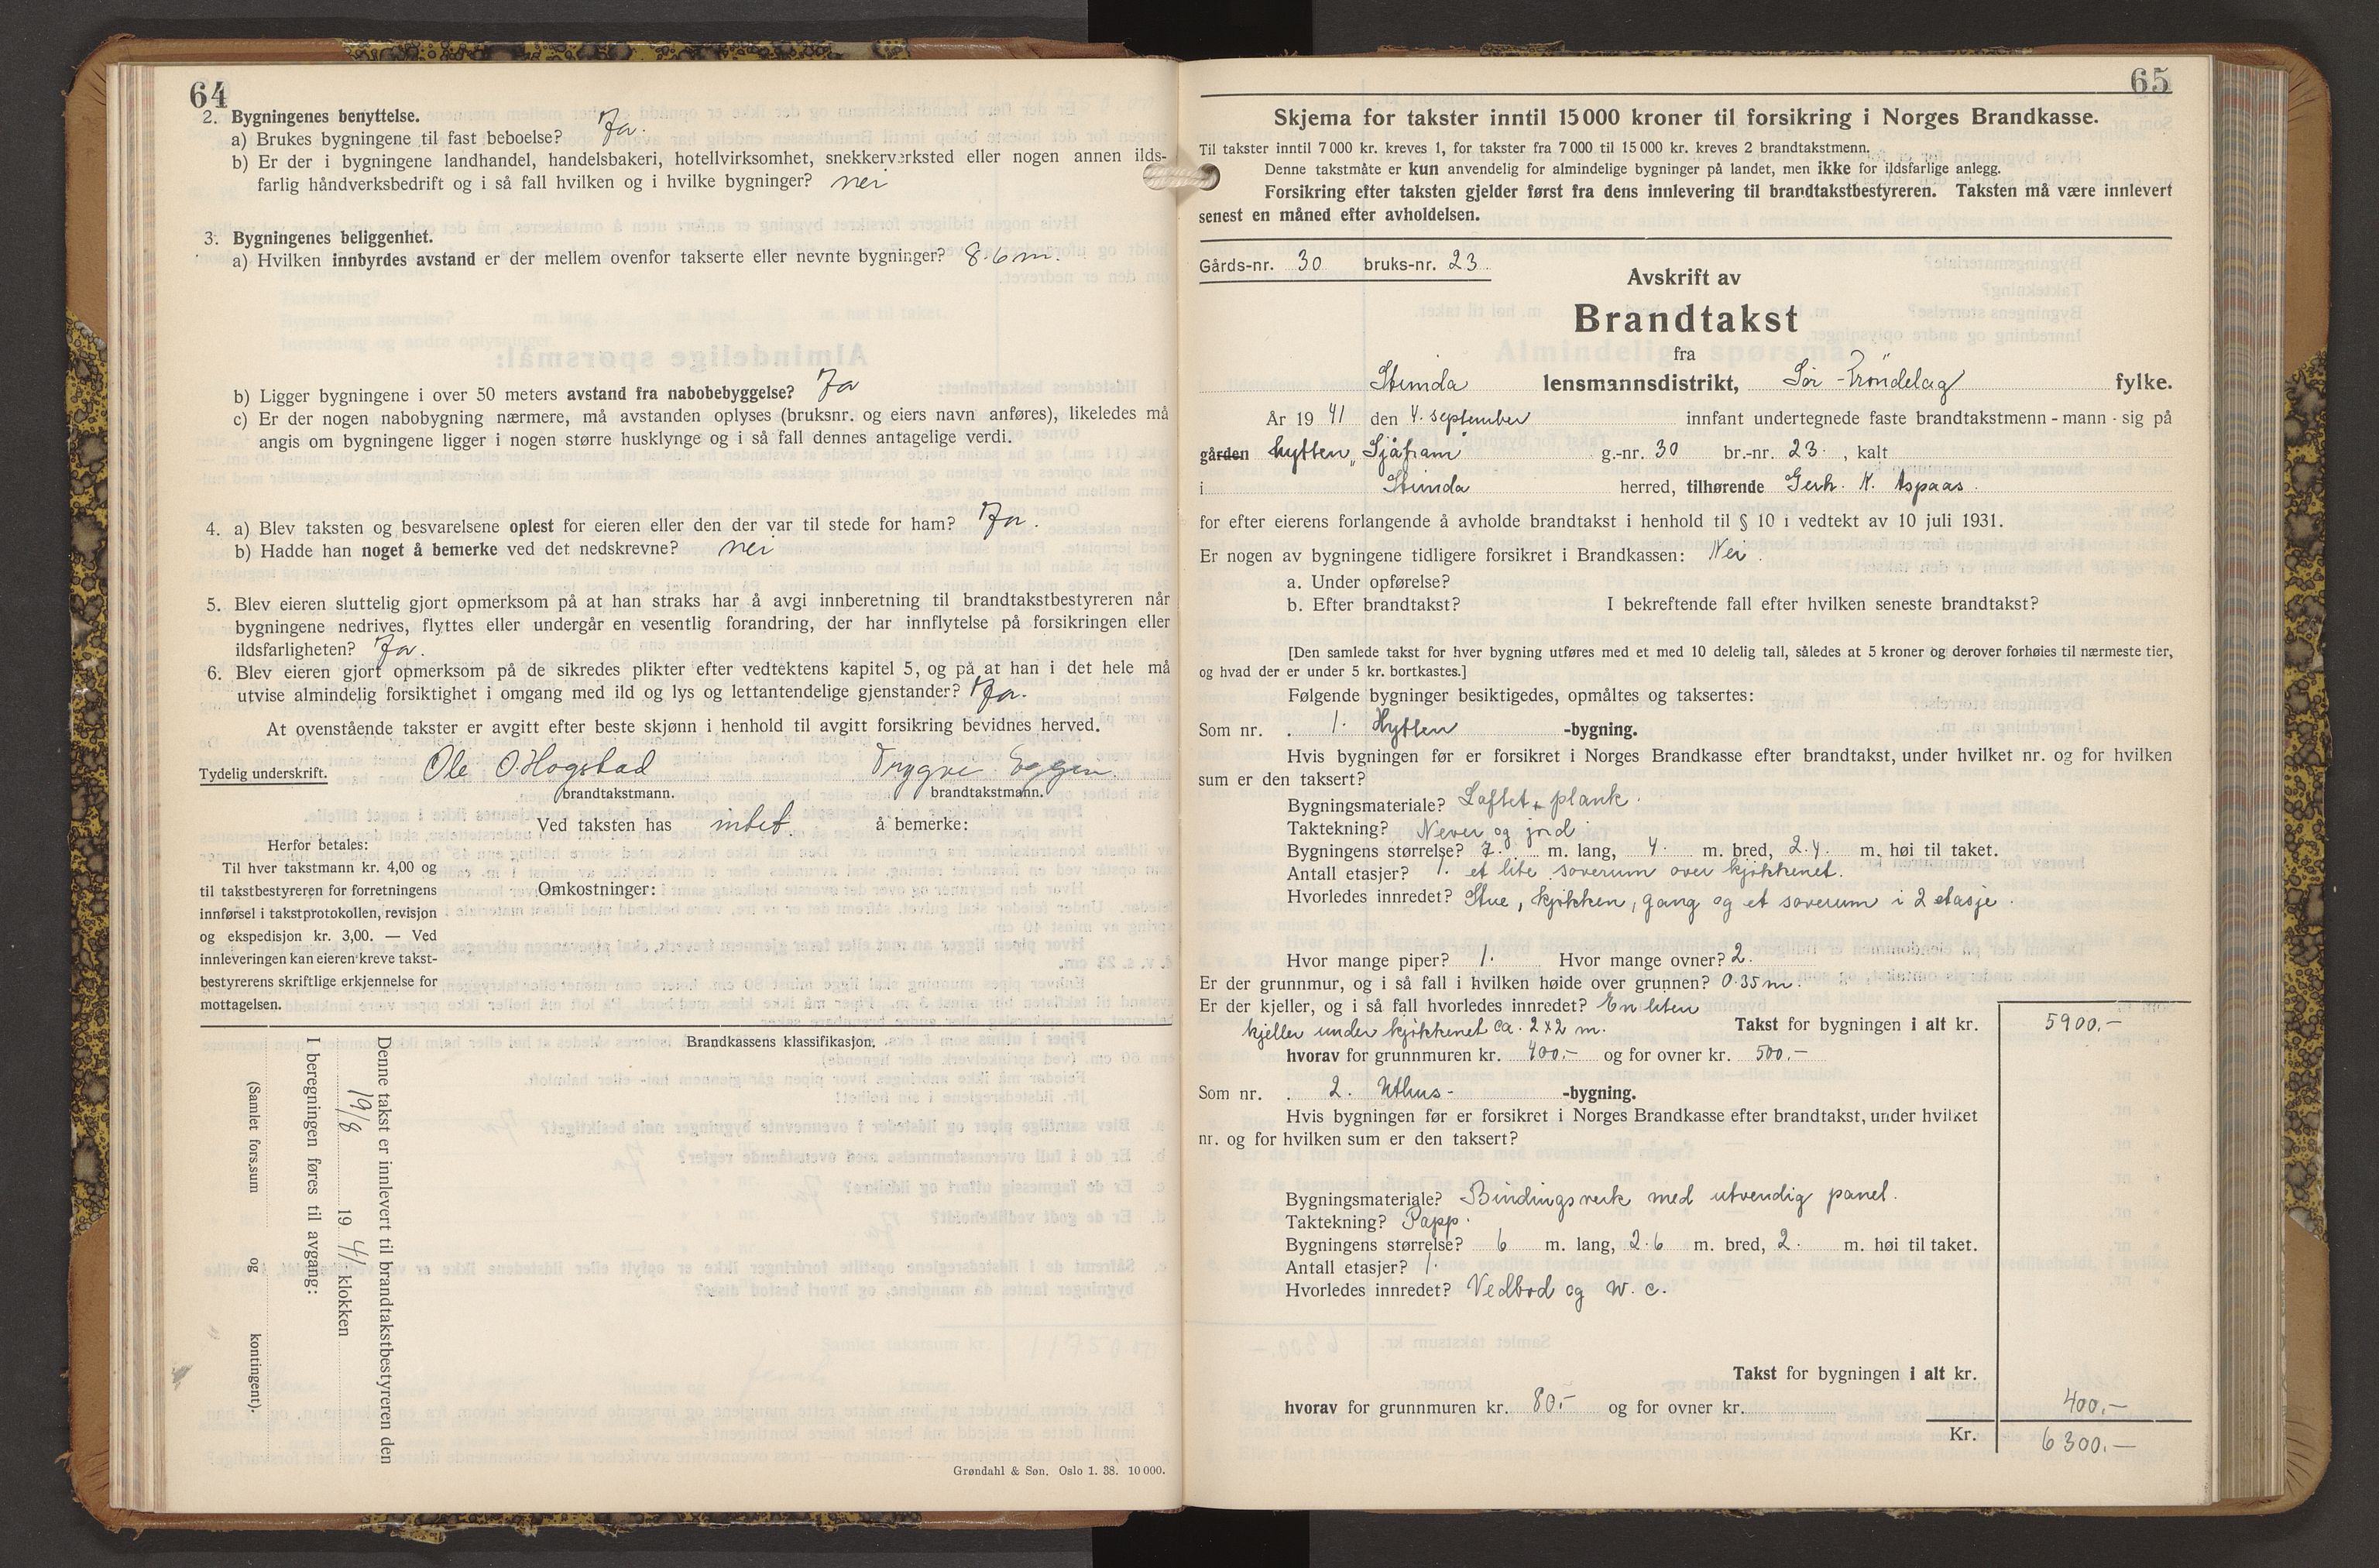 64
2. Bygningenes benyttelse.
a) Brukes bygningene til fast beboelse? Ja.
b) Er der i bygningene landhandel, handelsbakeri, hotellvirksomhet, snekkerverksted eller nogen annen ilds-
farlig håndverksbedrift og i så fall hvilken og i hvilke bygninger? nei
3. Bygningenes beliggenhet.
a) Hvilken innbyrdes avstand er der mellem ovenfor takserte eller nevnte bygninger? 8.6 m.
b) Ligger bygningene i over 50 meters avstand fra nabobebyggelse? Ja
c) Er der nogen nabobygning nærmere, må avstanden oplyses (bruksnr. og eiers navn anføres), likeledes må
angis om bygningene ligger i nogen større husklynge og i så fall dennes antagelige verdi.
4. a) Blev taksten og besvarelsene oplest for eieren eller den der var til stede for ham? Ja.
b) Hadde han noget å bemerke ved det nedskrevne? nei
5. Blev eieren sluttelig gjort opmerksom på at han straks har å avgi innberetning til brandtakstbestyreren når
bygningene nedrives, flyttes eller undergår en vesentlig forandring, der har innflytelse på forsikringen eller
ildsfarligheten? Ja.
6. Blev eieren gjort opmerksom på de sikredes plikter efter vedtektens kapitel 5, og på at han i det hele må
utvise almindelig forsiktighet i omgang med ild og lys og lettantendelige gjenstander? Ja.
At ovenstående takster er avgitt efter beste skjønn i henhold til avgitt forsikring bevidnes herved.
Tydelig underskrift. Ole O. Hogstad Trygve Eggen.
brandtakstmann. brandtakstmann.
Ved taksten has intet. å bemerke:
Herfor betales:
Til hver takstmann kr. 4,00 og
til takstbestyreren for forretningens
innførsel i takstprotokollen, revisjon
og ekspedisjon kr. 3,00. — Ved
innleveringen kan eieren kreve takst-
bestyrerens skriftlige erkjennelse for
mottagelsen.
Omkostninger:
Brandkassens klassifikasjon.
Denne takst er innlevert til brandtakstbestyreren den
19/8 19 41 klokken
I beregningen føres til avgang:
(Samlet fors.sum og kontingent).
Grøndahl & Søn. Oslo 1. 38. 10 000.
65
Skjema for takster inntil 15 000 kroner til forsikring i Norges Brandkasse.
Til takster inntil 7 000 kr. kreves 1, for takster fra 7 000 til 15 000 kr. kreves 2 brandtakstmenn.
Denne takstmåte er kun anvendelig for almindelige bygninger på landet, men ikke for ildsfarlige anlegg.
Forsikring efter taksten gjelder først fra dens innlevering til brandtakstbestyreren. Taksten må være innlevert
senest en måned efter avholdelsen.
Gårds-nr. 30 bruks-nr. 23
Avskrift av
Brandtakst
fra
Strinda lensmannsdistrikt, Sör-Tröndelag fylke.
År 19 41 den 4. september innfant undertegnede faste brandtakstmenn - mann - sig på
gården hytten „Sjåfram" g.-nr. 30 br.-nr. 23. , kalt
i Strinda herred, tilhørende Gerh. N. Aspaas.
for efter eierens forlangende å avholde brandtakst i henhold til § 10 i vedtekt av 10 juli 1931.
Er nogen av bygningene tidligere forsikret i Brandkassen: Nei.
a. Under opførelse?
b. Efter brandtakst? I bekreftende fall efter hvilken seneste brandtakst?
[Den samlede takst for hver bygning utføres med et med 10 delelig tall, således at 5 kroner og derover forhøies til nærmeste tier,
og hvad der er under 5 kr. bortkastes.]
Følgende bygninger besiktigedes, opmåltes og taksertes:
Som nr. . 1. Hytten -bygning.
Hvis bygningen før er forsikret i Norges Brandkasse efter brandtakst, under hvilket nr. og for hvilken
sum er den taksert?
Bygningsmateriale? Laftet plank.
Taktekning? Never og jord
Bygningens størrelse? 7. m. lang, 4. m. bred, 2.4. m. høi til taket.
Antall etasjer? 1. et lite soverum over kjökkenet.
Hvorledes innredet? Stue, kjökken, gang og et soverum i 2 etasje.
Hvor mange piper? 1. Hvor mange ovner? 2.
Er der grunnmur, og i så fall i hvilken høide over grunnen? 0.35 m.
Er der kjeller, og i så fall hvorledes innredet? En liten
kjeller under kjökkenet ca. 2x2 m. Takst for bygningen i alt kr. 5900.-
hvorav for grunnmuren kr. 400.- og for ovner kr. 500.-
Som nr. . 2. Uthus- -bygning.
Hvis bygningen før er forsikret i Norges Brandkasse efter brandtakst, under hvilket
nr. og for hvilken sum er den taksert?
Bygningsmateriale? Bindingsverk med utvendig panel.
Taktekning? Papp.
Bygningens størrelse? 6 m. lang, 2.6 m. bred, 2. m. høi til taket.
Antall etasjer? 1.
Hvorledes innredet? Vedbod og W.c.
Takst for bygningen i alt kr.
hvorav for grunnmuren kr. 80.- og for ovner kr. 400.-
Kr. 6300.-